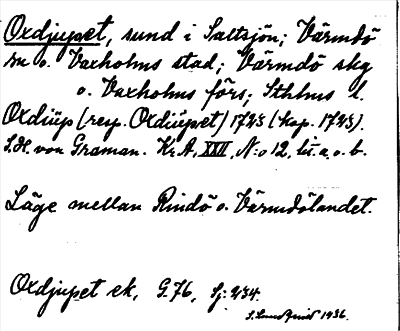 Oxdjupet, sund i Saltsjön; Värmdö
sn o. Vaxholms stad; Värmdö skg
o. Vaxholms förs; Sthlms l.
Oxdiüp (resp. Oxdiüpet) 1725 (kop. 1725).
S.H. von Graman. Kr.A, XXII, N:o 12, lit. a. o. b.
Läge mellan Rindö o. Värmdölandet.
Oxdjupet ek, G.76, Sj: 234.
S. Lundqvist 1936.